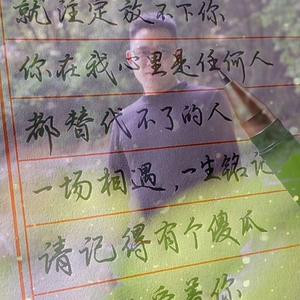 就注定放不下你
你在我心里是任何人
都替代不了的人
一场相遇,一生铭记
请记得有个傻瓜
爱着你